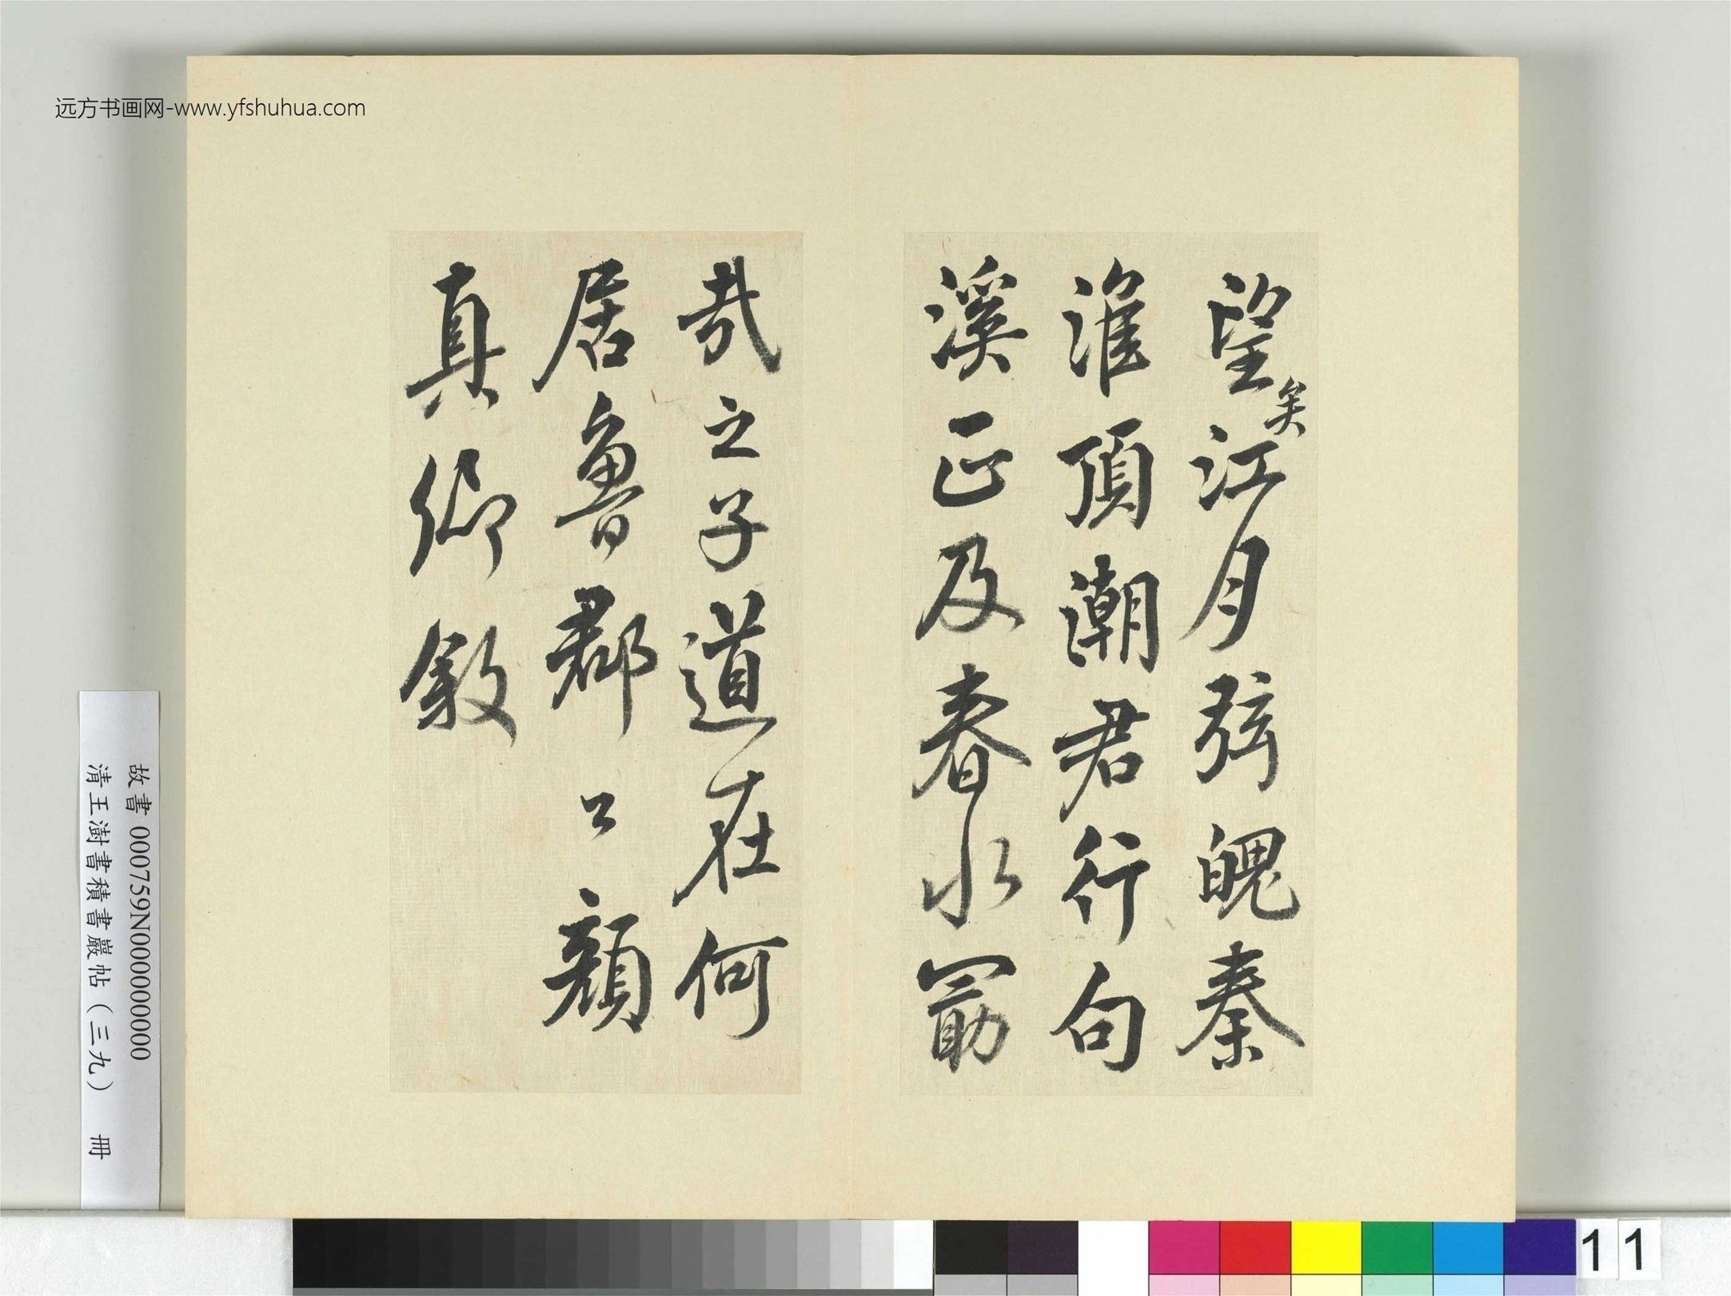 远方书画网-www.yfshuhua.com
望矣江月弦魄秦
淮頂潮君行句
溪正及春水勗
哉之子道在何
居魯郡公顏
真卿敘
故書 000759N000000000
清王澍書積書巖帖(三九) 冊
11